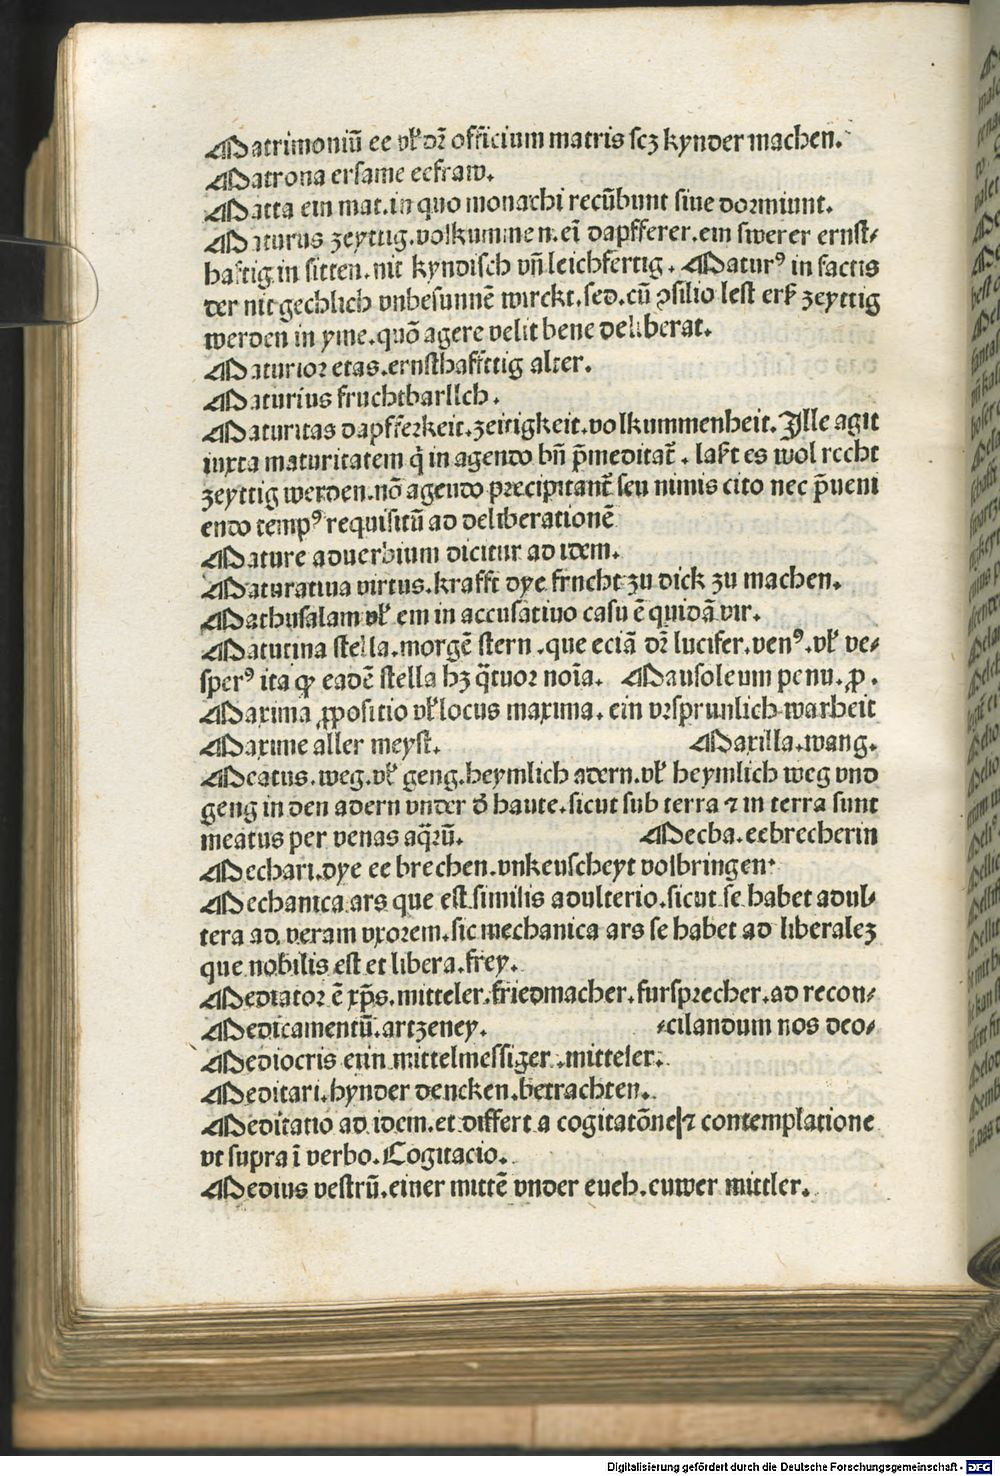 Matrimoniū ee vł dr̄ officium matris scꝫ kynder machen.
Matrona ersame eefraw.
Matta ein mat.in quo monachi recūbunt siue dormiunt.
Maturus zeyttig.volkummen.eī dapfferer.ein swerer ernst⸗
haftig in sitten.nit kyndisch vn̄ leichfertig. Maturꝰ in factis
der nit gechlich vnbesunnē wirckt.sed.cū ꝯsilio lest erß zeyttig
werden in yme.quō agere velit bene deliberat.
Maturior etas.ernsthaffttig alter.
Maturius fruchtbarllch.
Maturitas dapfferkeit.zeitigkeit.volkummenheit. Ille agit
iuxta maturitatem q̇ in agendo bn̄ p̄meditat̄. laßt es wol recht
zeyttig werden.nō agendo precipitant̄ seu nimis cito nec p̄ueni
endo tempꝰ requisitū ad deliberationē
Mature aduerbium dicitur ad idem.
Maturatiua virtus.krafft dye frucht zu dick zu machen.
Mathusalam vł em in accusatiuo casu ē quidā vir.
Matutina stella.morgē stern .que eciā dr̄ lucifer.venꝰ.vł ve⸗
sperꝰ ita ꝙ eadē stella hꝫ q̄tuor noīa. Mausoleum penu.ꝓ.
Maxima ꝓpositio vł locus maxima. ein vrsprunlich warheit
Maxime aller meyst. Maxilla.wang.
Meatus.weg.vł geng.heymlich adern.vł heymlich weg vnd
geng in den adern vnder d̄ haute.sicut sub terra ⁊ in terra sunt
meatus per venas aq̄rū. Mecha.eebrecherin
Mechari.dye ee brechen.vnkeuscheyt volbringen.
Mechanica ars que est similis adulterio.sicut se habet adul⸗
tera ad veram vxorem.sic mechanica ars se habet ad liberaleꝫ
que nobilis est et libera.frey.
Mediator ē xp̄s.mitteler.friedmacher.fursprecher.ad recon⸗
Medicamentū.artzeney. ⸗cilandum nos deo⸗
Mediocris enin mittelmessiger .mitteler.
Meditari.hynder dencken.betrachten.
Meditatio ad idem.et differt a cogitatōne ⁊ contemplatione
vt supra ī verbo.Cogitacio.
Medius vestrū.einer mittē vnder euch.euwer mittler.
Digitalisierung gefördert durch die Deutsche Forschungsgemeinschaft - DFG